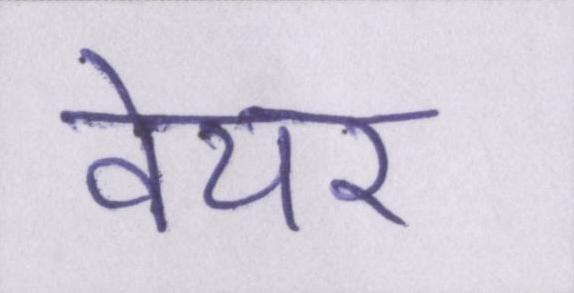 वेयर